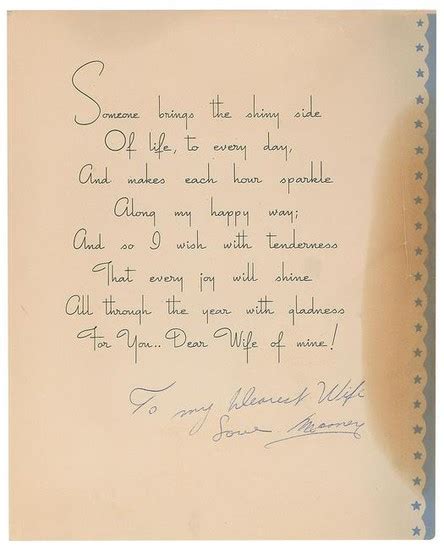 Someone brings the shiny side
Of life, to every day,
And makes each hour sparkle
Along my happy way;
And so I wish with tenderness
That every joy will shine
All through the year with gladness
For You.. Dear Wife of mine!
To my Dearest Wife
Love